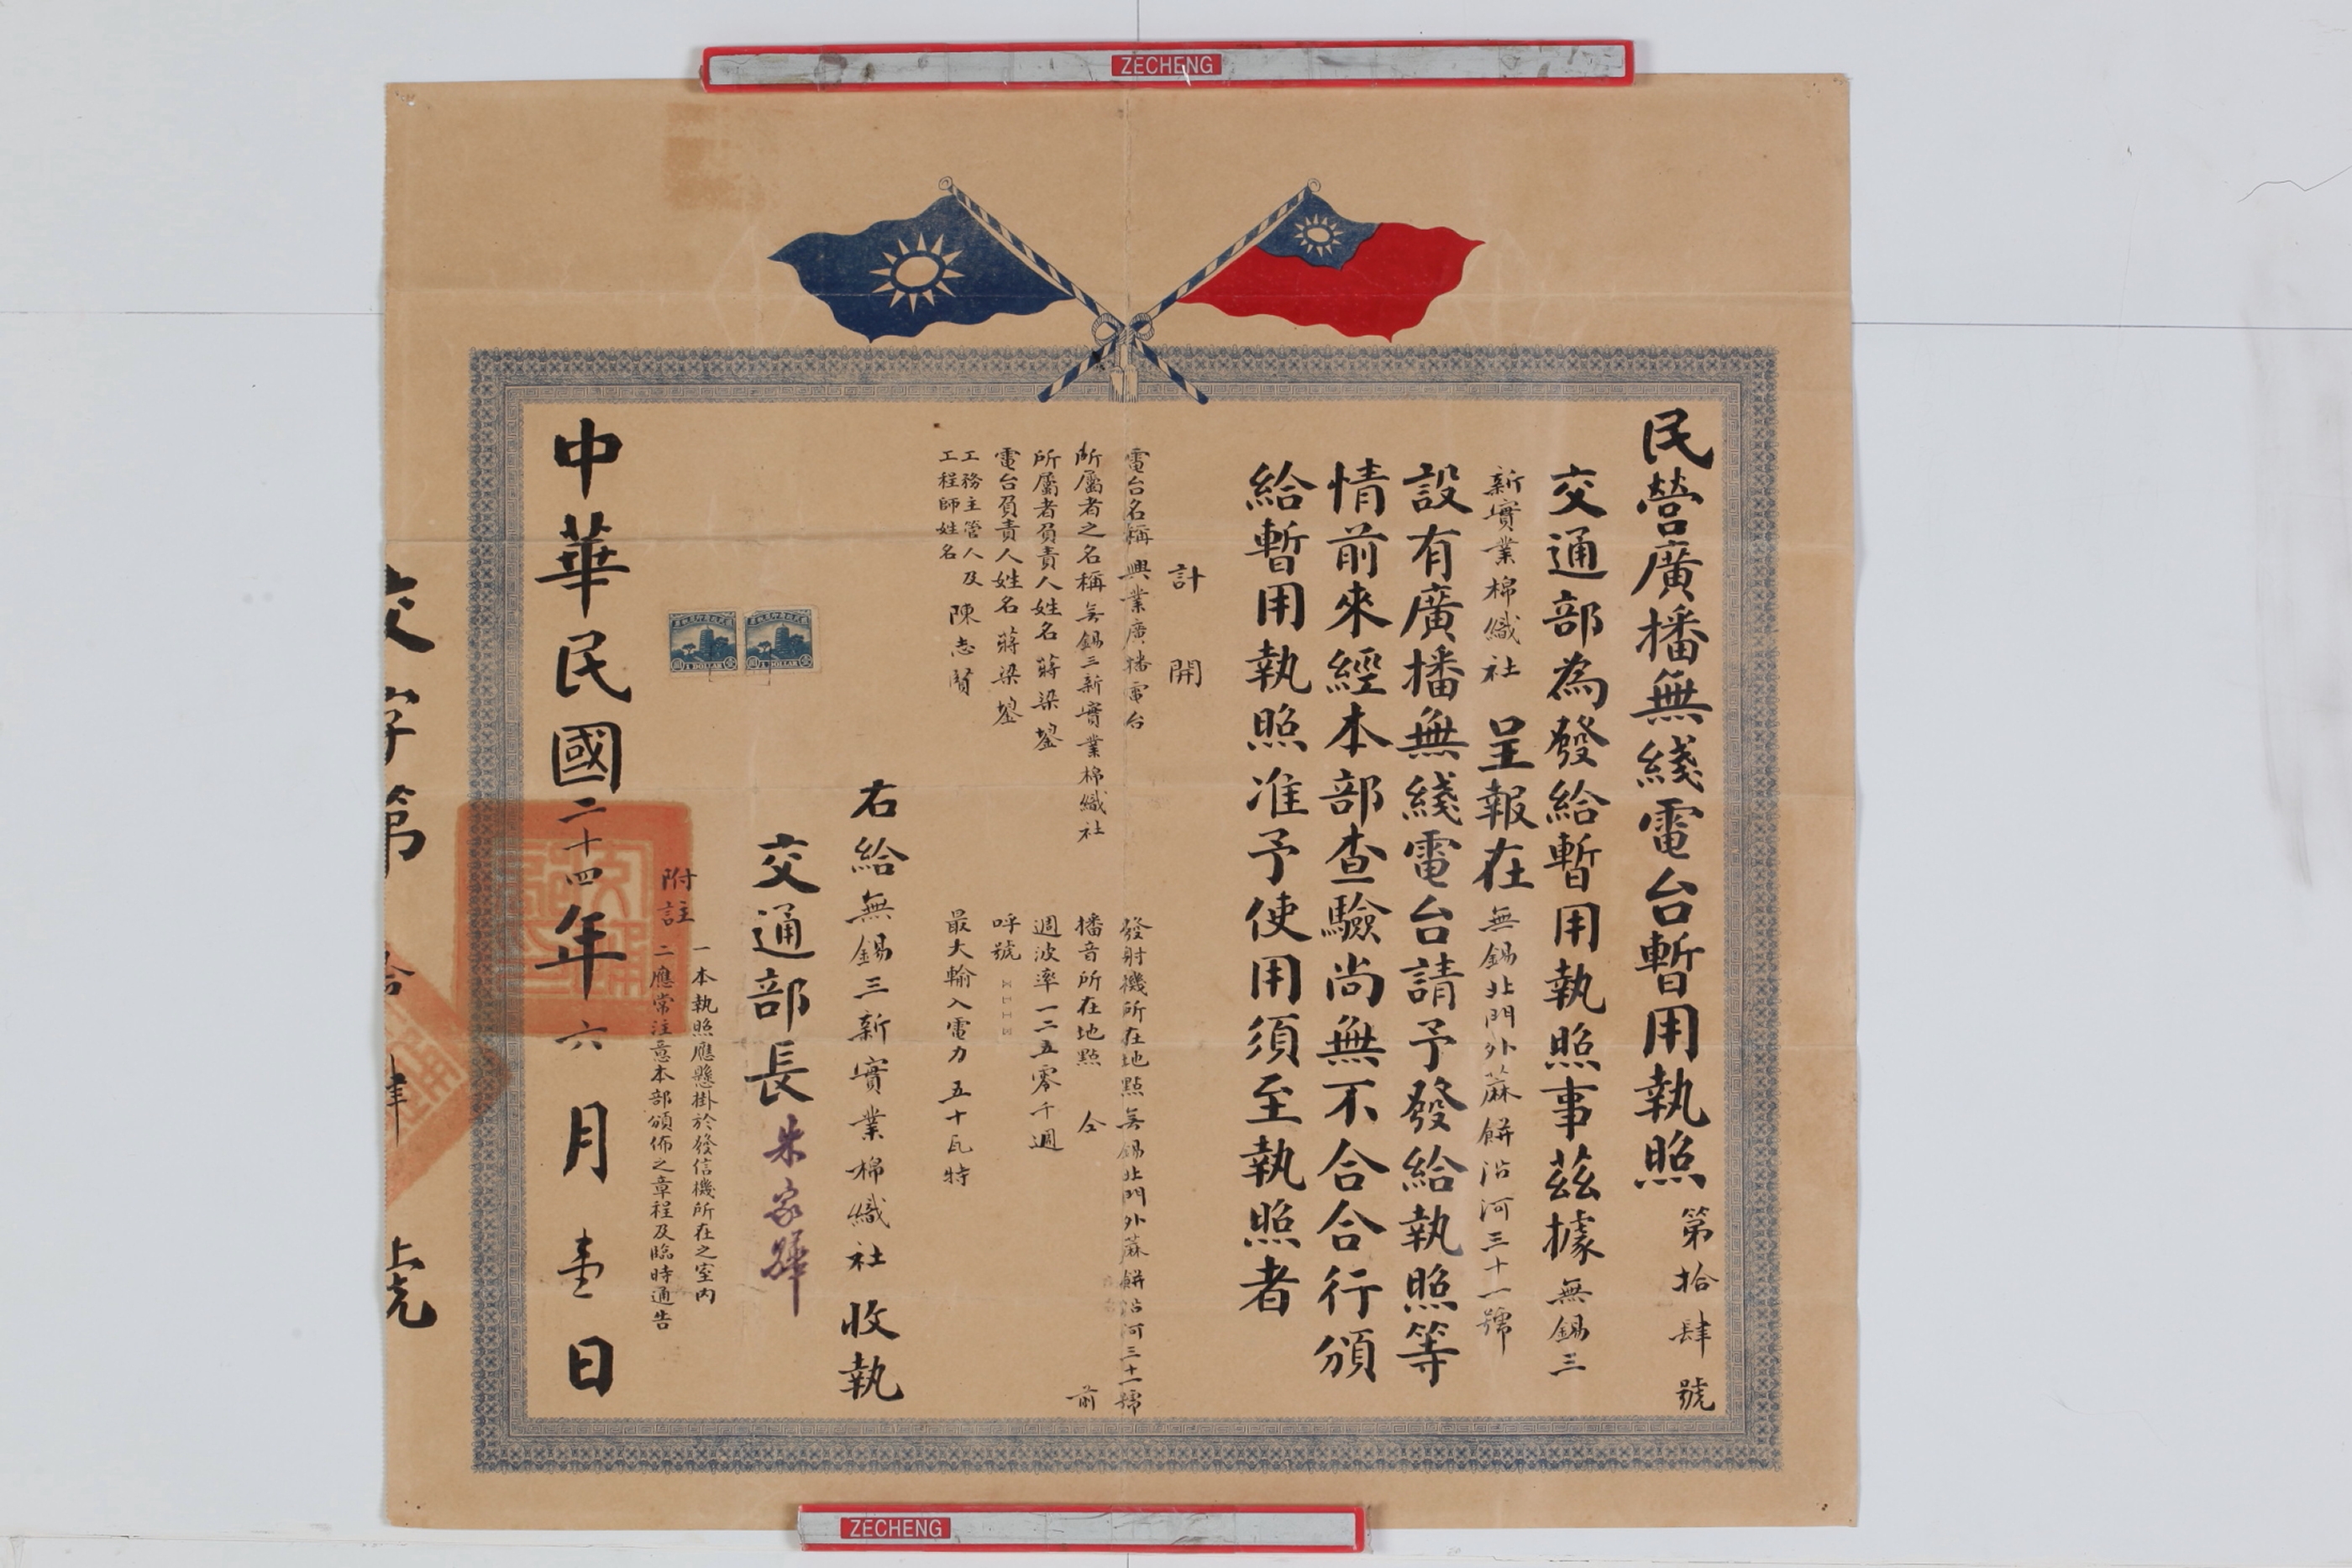 ZECHENG
民營廣播無綫電台暫用執照 第拾肆號
交通部為發給暫用執照事茲據無錫三
新實業棉織社 呈報在無錫北門外蔴餅沿河三十一號
設有廣播無綫電台請予發給執照等
情前來經本部查驗尚無不合合行頒
給暫用執照准予使用須至執照者
計開
電台名稱 興業廣播電台
所屬者之名稱 無錫三新實業棉織社
所屬者負責人姓名 蔣梁
電台負責人姓名 蔣梁
工務主管人及
工程師姓名 陳志賢
發射機所在地點 無錫北門外蔴餅沿河三十一號
播音所在地點 仝前
週波率一二五零千週
呼號
最大輸入電力 五十瓦特
右給無錫三新實業棉織社收執
交通部長朱家驊
附註
一本執照應懸掛於發信機所在之室內
二應常注意本部頒佈之章程及臨時通告
1 DOLLAR
1 DOLLAR
中華民國二十四年六月壹日
交字第拾肆號
ZECHENG